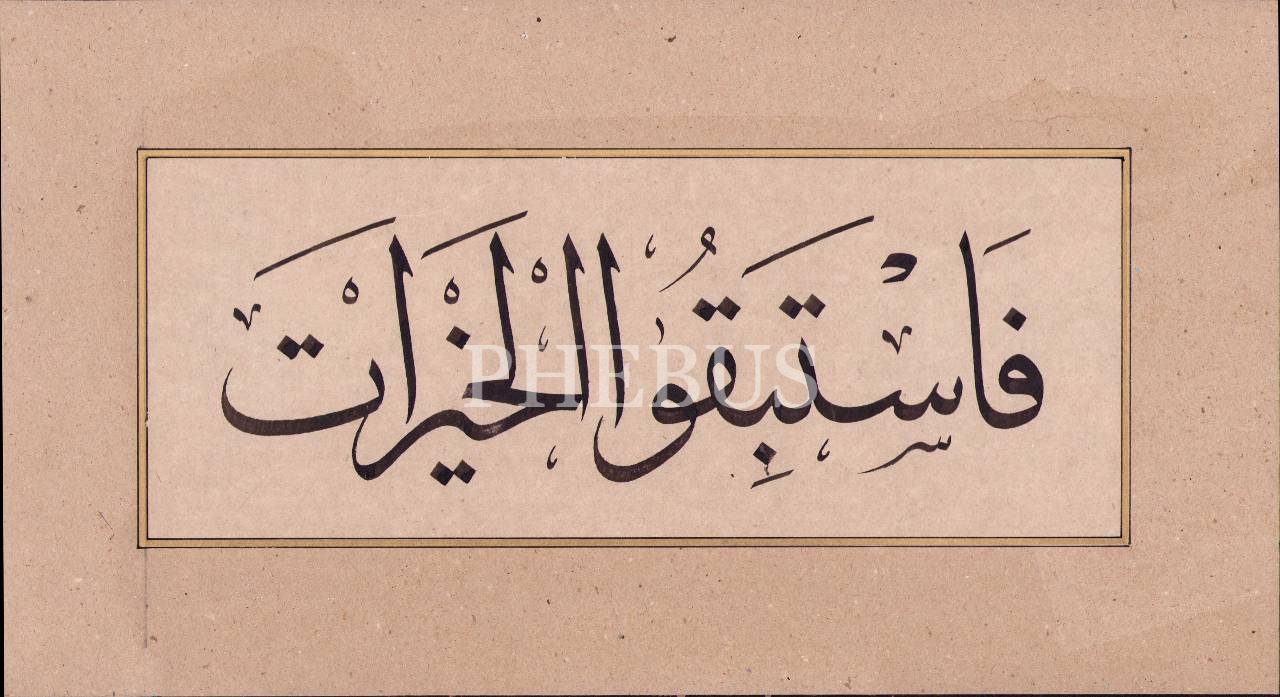 فَاسْتَبِقُوا الْخَيْرَاتِ
PHEBUS